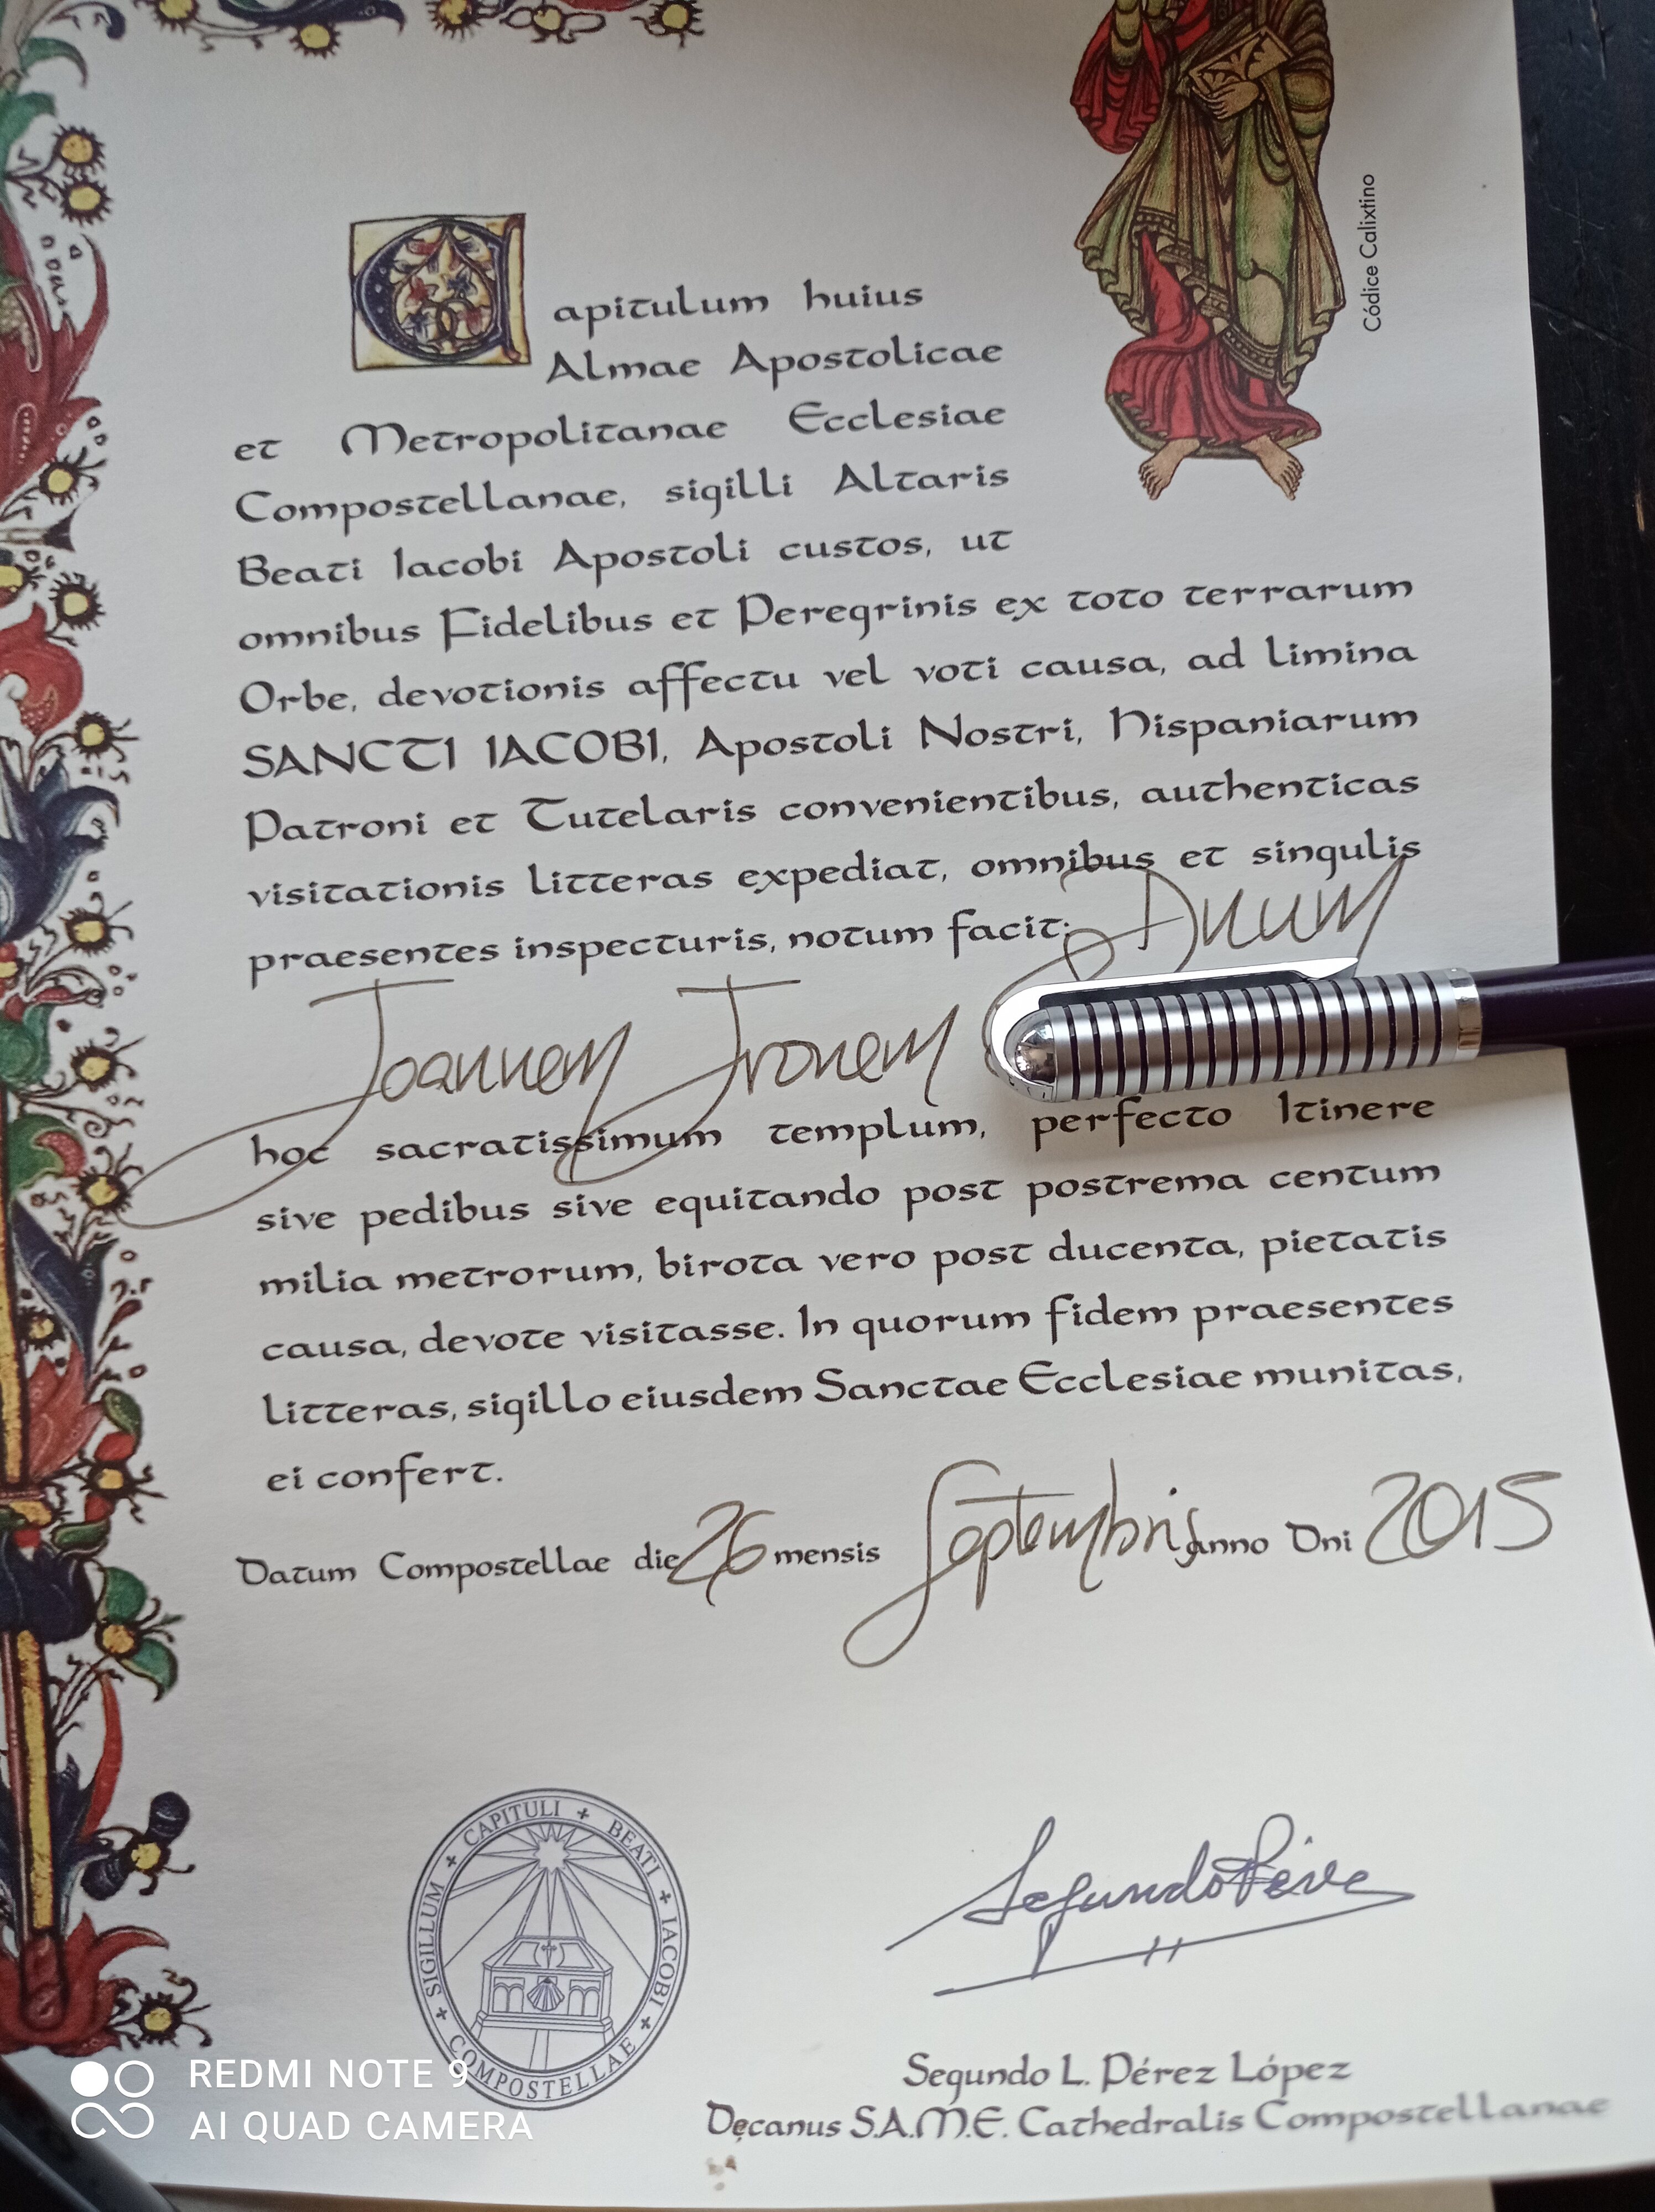 Códice Calixtino
Capitulum huius
Almae Apostolicae
et Metropolitanae Ecclesiae
Compostellanae, sigilli Altaris
Beati Iacobi Apostoli custos, ut
omnibus Fidelibus et Peregrinis ex toto terrarum
Orbe, devotionis affectu vel voti causa, ad limina
SANCTI IACOBI, Apostoli Nostri, Hispaniarum
Patroni et Tutelaris convenientibus, authenticas
visitationis litteras expediat, omnibus et singulis
praesentes inspecturis, notum facit: Dnum
Joannem
hoc sacratissimum templum, perfecto Itinere
sive pedibus sive equitando post postrema centum
milia metrorum, birota vero post ducenta, pietatis
causa, devote visitasse. In quorum fidem praesentes
litteras, sigillo eiusdem Sanctae Ecclesiae munitas,
ei confert.
Datum Compostellae die 26 mensis Septembris anno Dni 2015
SIGILLUM + CAPITULI + BEATI + IACOBI + COMPOSTELLAE +
Segundo L. Pérez López
Decanus S.A.M.E. Cathedralis Compostellanae
REDMI NOTE 9
AI QUAD CAMERA